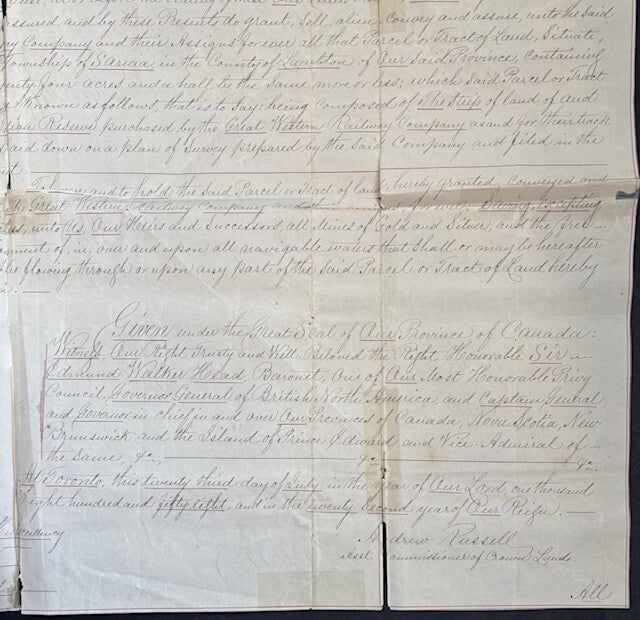 assured, and by these Presents do grant, sell, alien, convey and assure, unto the said
Company and their Assigns for ever all that Parcel or Tract of Land, Situate,
Township of Sarnia in the County of Lambton of Our Said Province, containing
four acres and a half, be the Same, more or less; which Said Parcel or Tract
Known as follows that is to Say: being composed of the strip of land of and
Indian Reserve purchased by the Great Western Railway Company as and for their track
laid down on a plan of Survey prepared by the Said Company and filed in the
To have and to hold the Said Parcel or Tract of land hereby granted conveyed and
The Great Western Railway Company and for ever; saving excepting
unto Us, Our Heirs and Successors, all Mines of Gold and Silver, and the free
in, over and upon all navigable waters that Shall or may be hereafter
flowing through or upon any part of the Said Parcel or Tract of Land hereby
Given under the Great Seal of Our Province of Canada:
Witness Our Right Trusty and Well-Beloved the Right Honorable Sir
Edmund Walker Head, Baronet, One of Our Most Honorable Privy
Council, Governor General of British North America, and Captain General
and Governor in chief in and over Our Provinces of Canada, Nova Scotia, New-
Brunswick and the Island of Prince Edward and Vice-Admiral of
the Same, &c., &c. &c
At Toronto, this twenty third day of July in the year of Our Lord, one thousand
eight hundred and fifty eight, and in the twenty second year of Our Reign.
Excellency
Andrew Russell
Asst. Commissioner of Crown Lands.